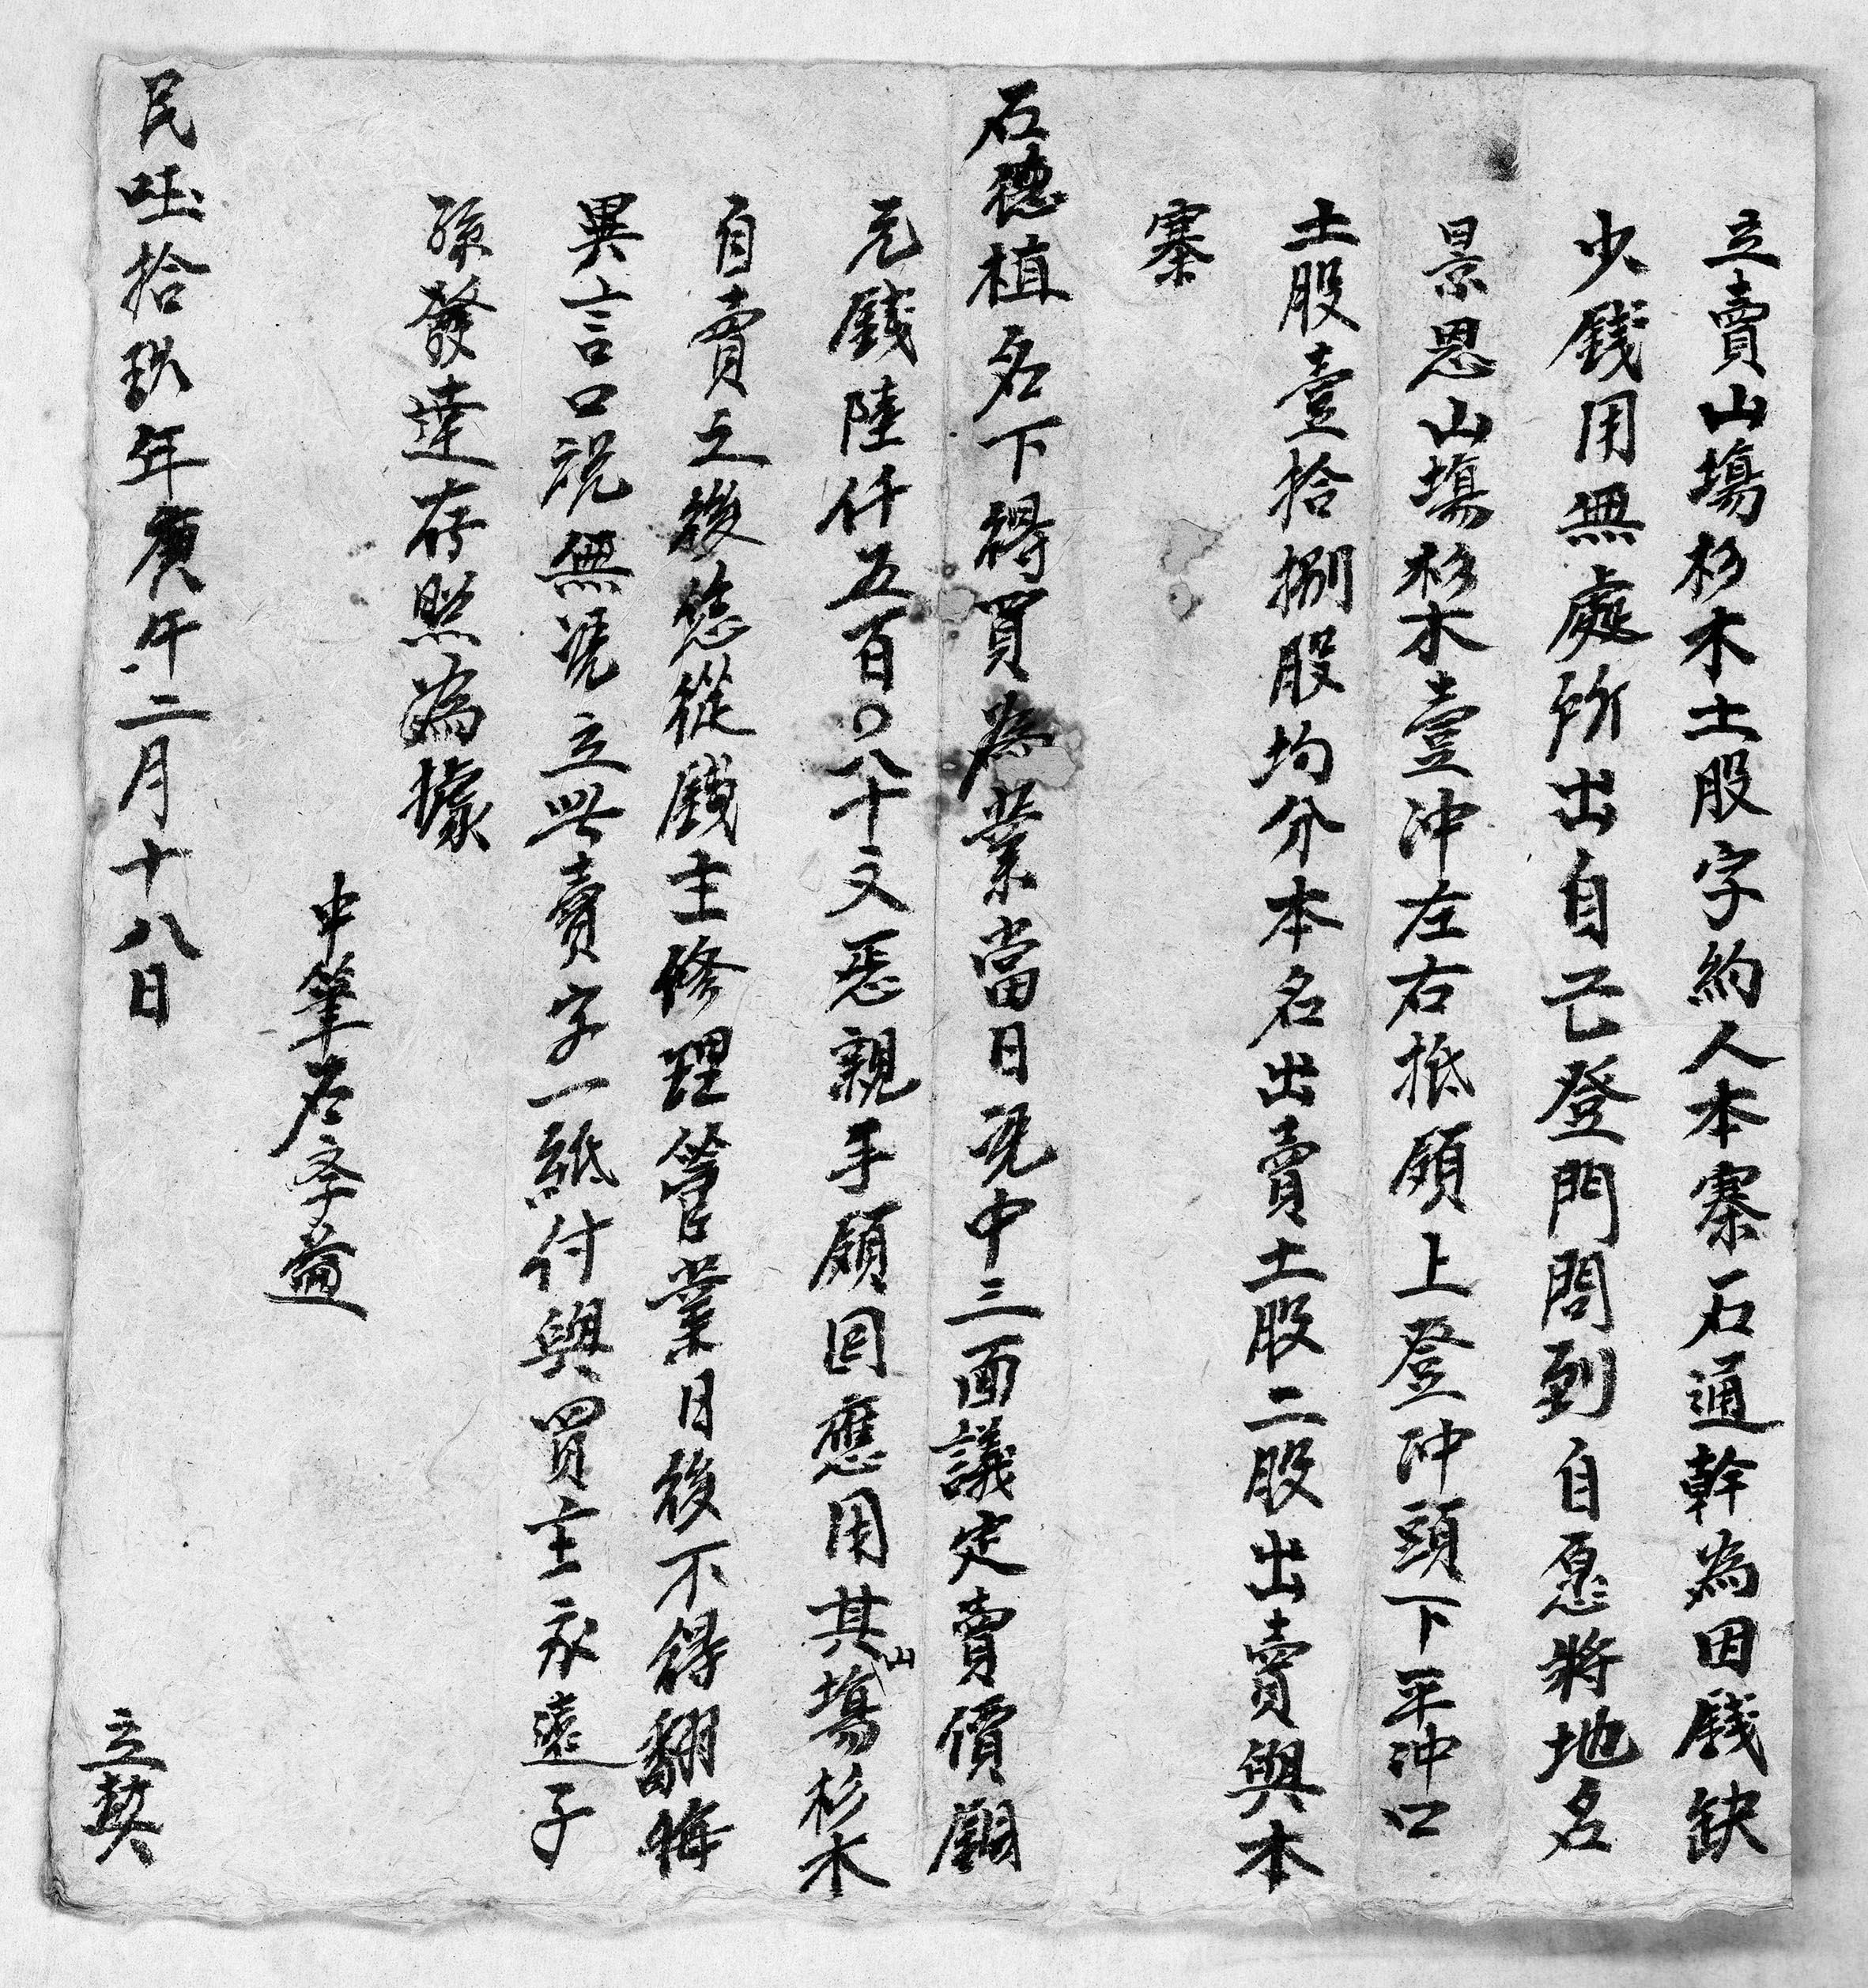 立賣山塲杉木土股字約人本寨石通幹為因錢缺
少錢用無處所出自己登門問到自愿將地名
景恩山塲杉木壹冲左右抵領上登冲頭下平冲口
土股壹拾捌股均分本名出賣土股二股出賣與本
寨
石德植名下得買為業當日凴中三面議定賣價銅
元錢陸仟五百〇八十文恁親手領囬應用其山塲杉木
自賣之後恁從錢主修理管業日後不得翻悔
異言口説無凴立此賣字一紙付與買主永遠子
孫發達存照為據
中筆石
民國拾玖年庚午二月十八日 立契